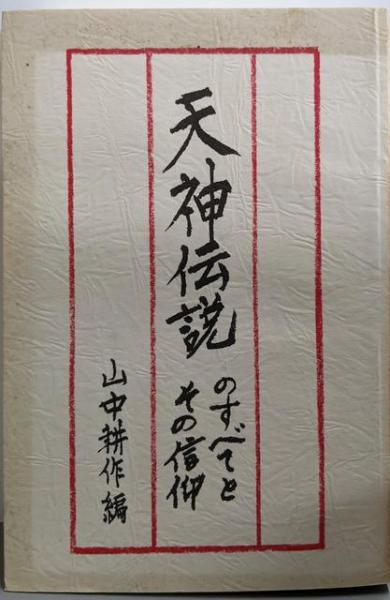 天神伝説
のすべてと
その信仰
山中耕作編